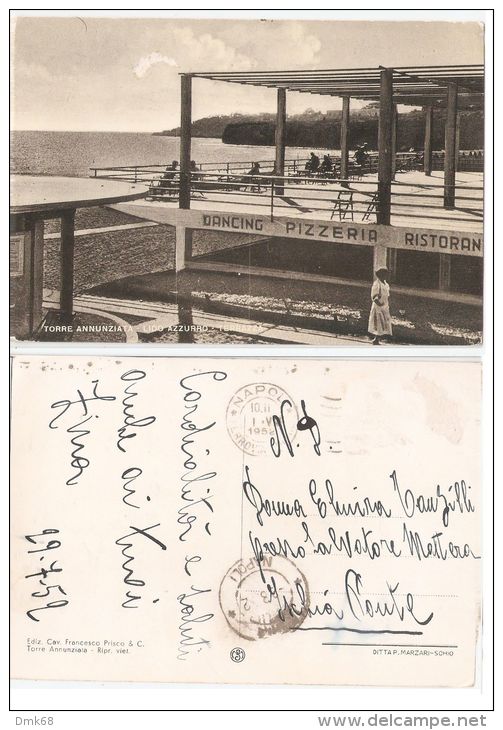 DANCING PIZZERIA RISTORAN
TORRE ANNUNZIATA - LIDO AZZURRO - TERRAZZA
Cordialità e saluti
anche ai tuoi
29.7.52
NAPOLI
10.11
N. D.
Donna Elvira
presso Salvatore Mattera
Ischia Ponte
NAPOLI
Ediz. Cav. Francesco Prisco & C.
Torre Annunziata - Ripr. viet.
DITTA P. MARZARI-SCHIO
Dmk68
www.delcampe.net